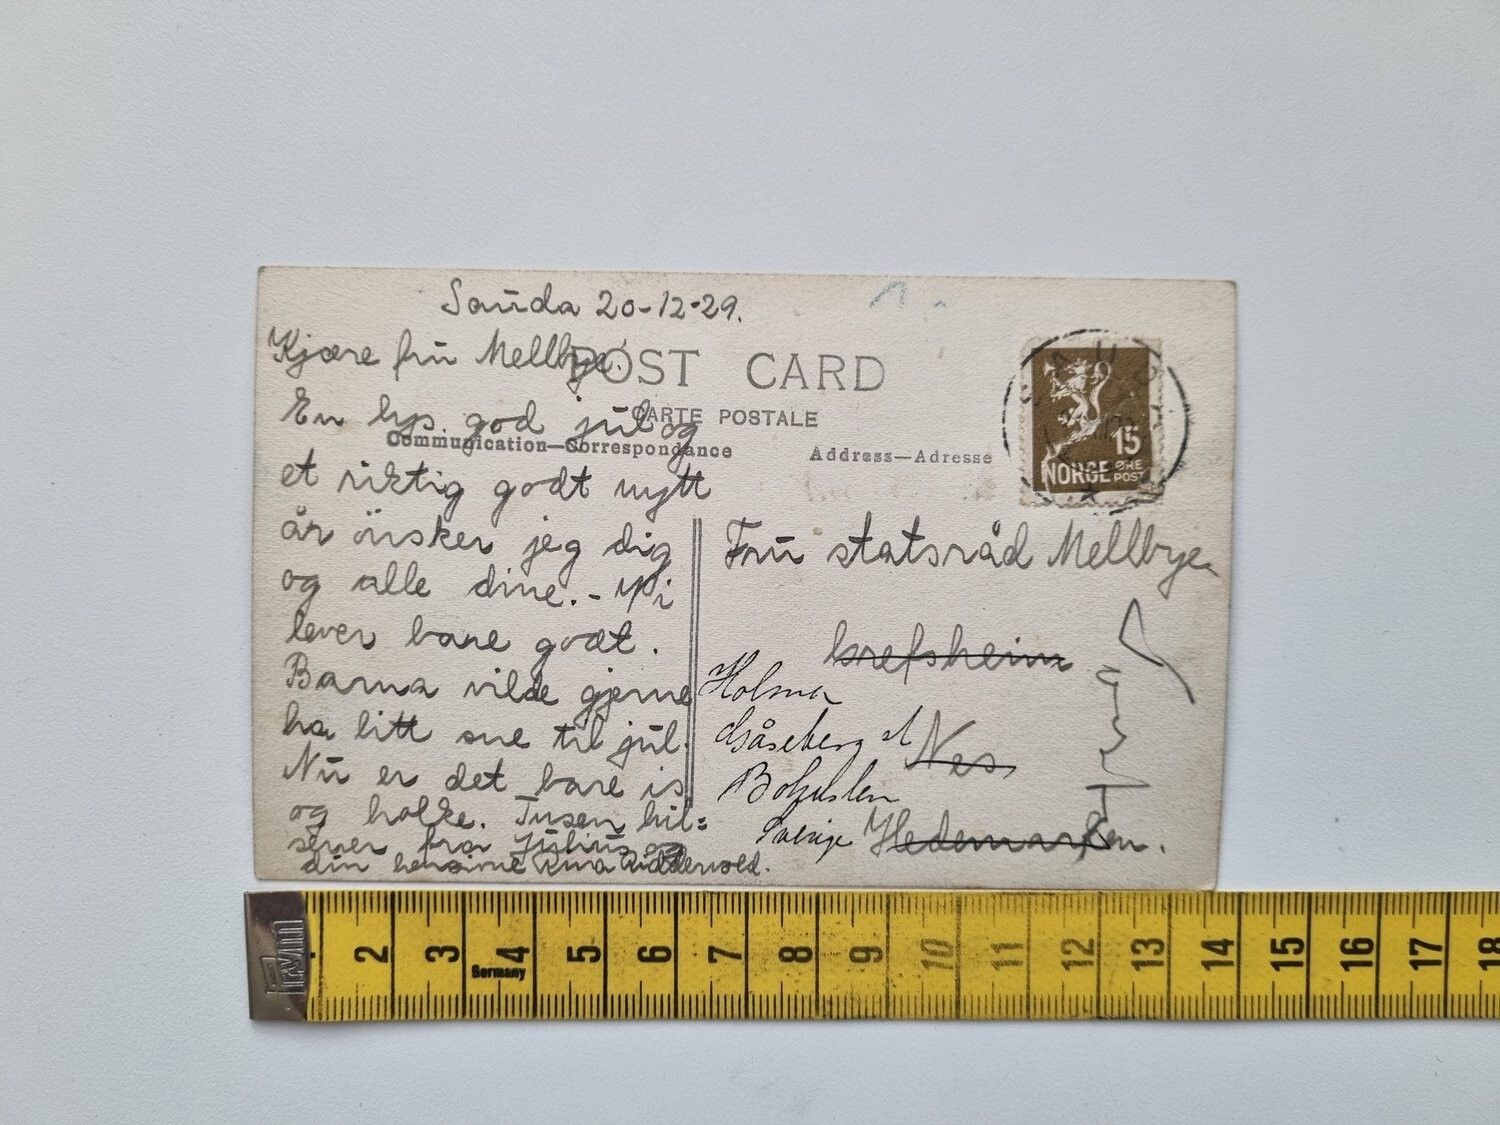 Sauda 20-12-29.
Kjære frú Mellbye.
POST CARD
CARTE POSTALE
Communication—Correspondance
Address—Adresse
En lys god júl og
et riktig godt nytt
år ønsker jeg dig
og alle dine. - Vi
lever bare godt.
Barna vilde gjerne
ha litt sne til júl.
Nú er det bare is
og holke. Tusen hil=
sener fra Júliús og
din hengivne Riddervold.
15
NORGE ØRE
POST
Frú statsråd Mellbye
Grefsheim
Holma
Gåseberg st
Nes
Bohuslen
Sverige
Hedemarken.
PRYM
2 3 4 5 6 7 8 9 10 11 12 13 14 15 16 17 18
Germany